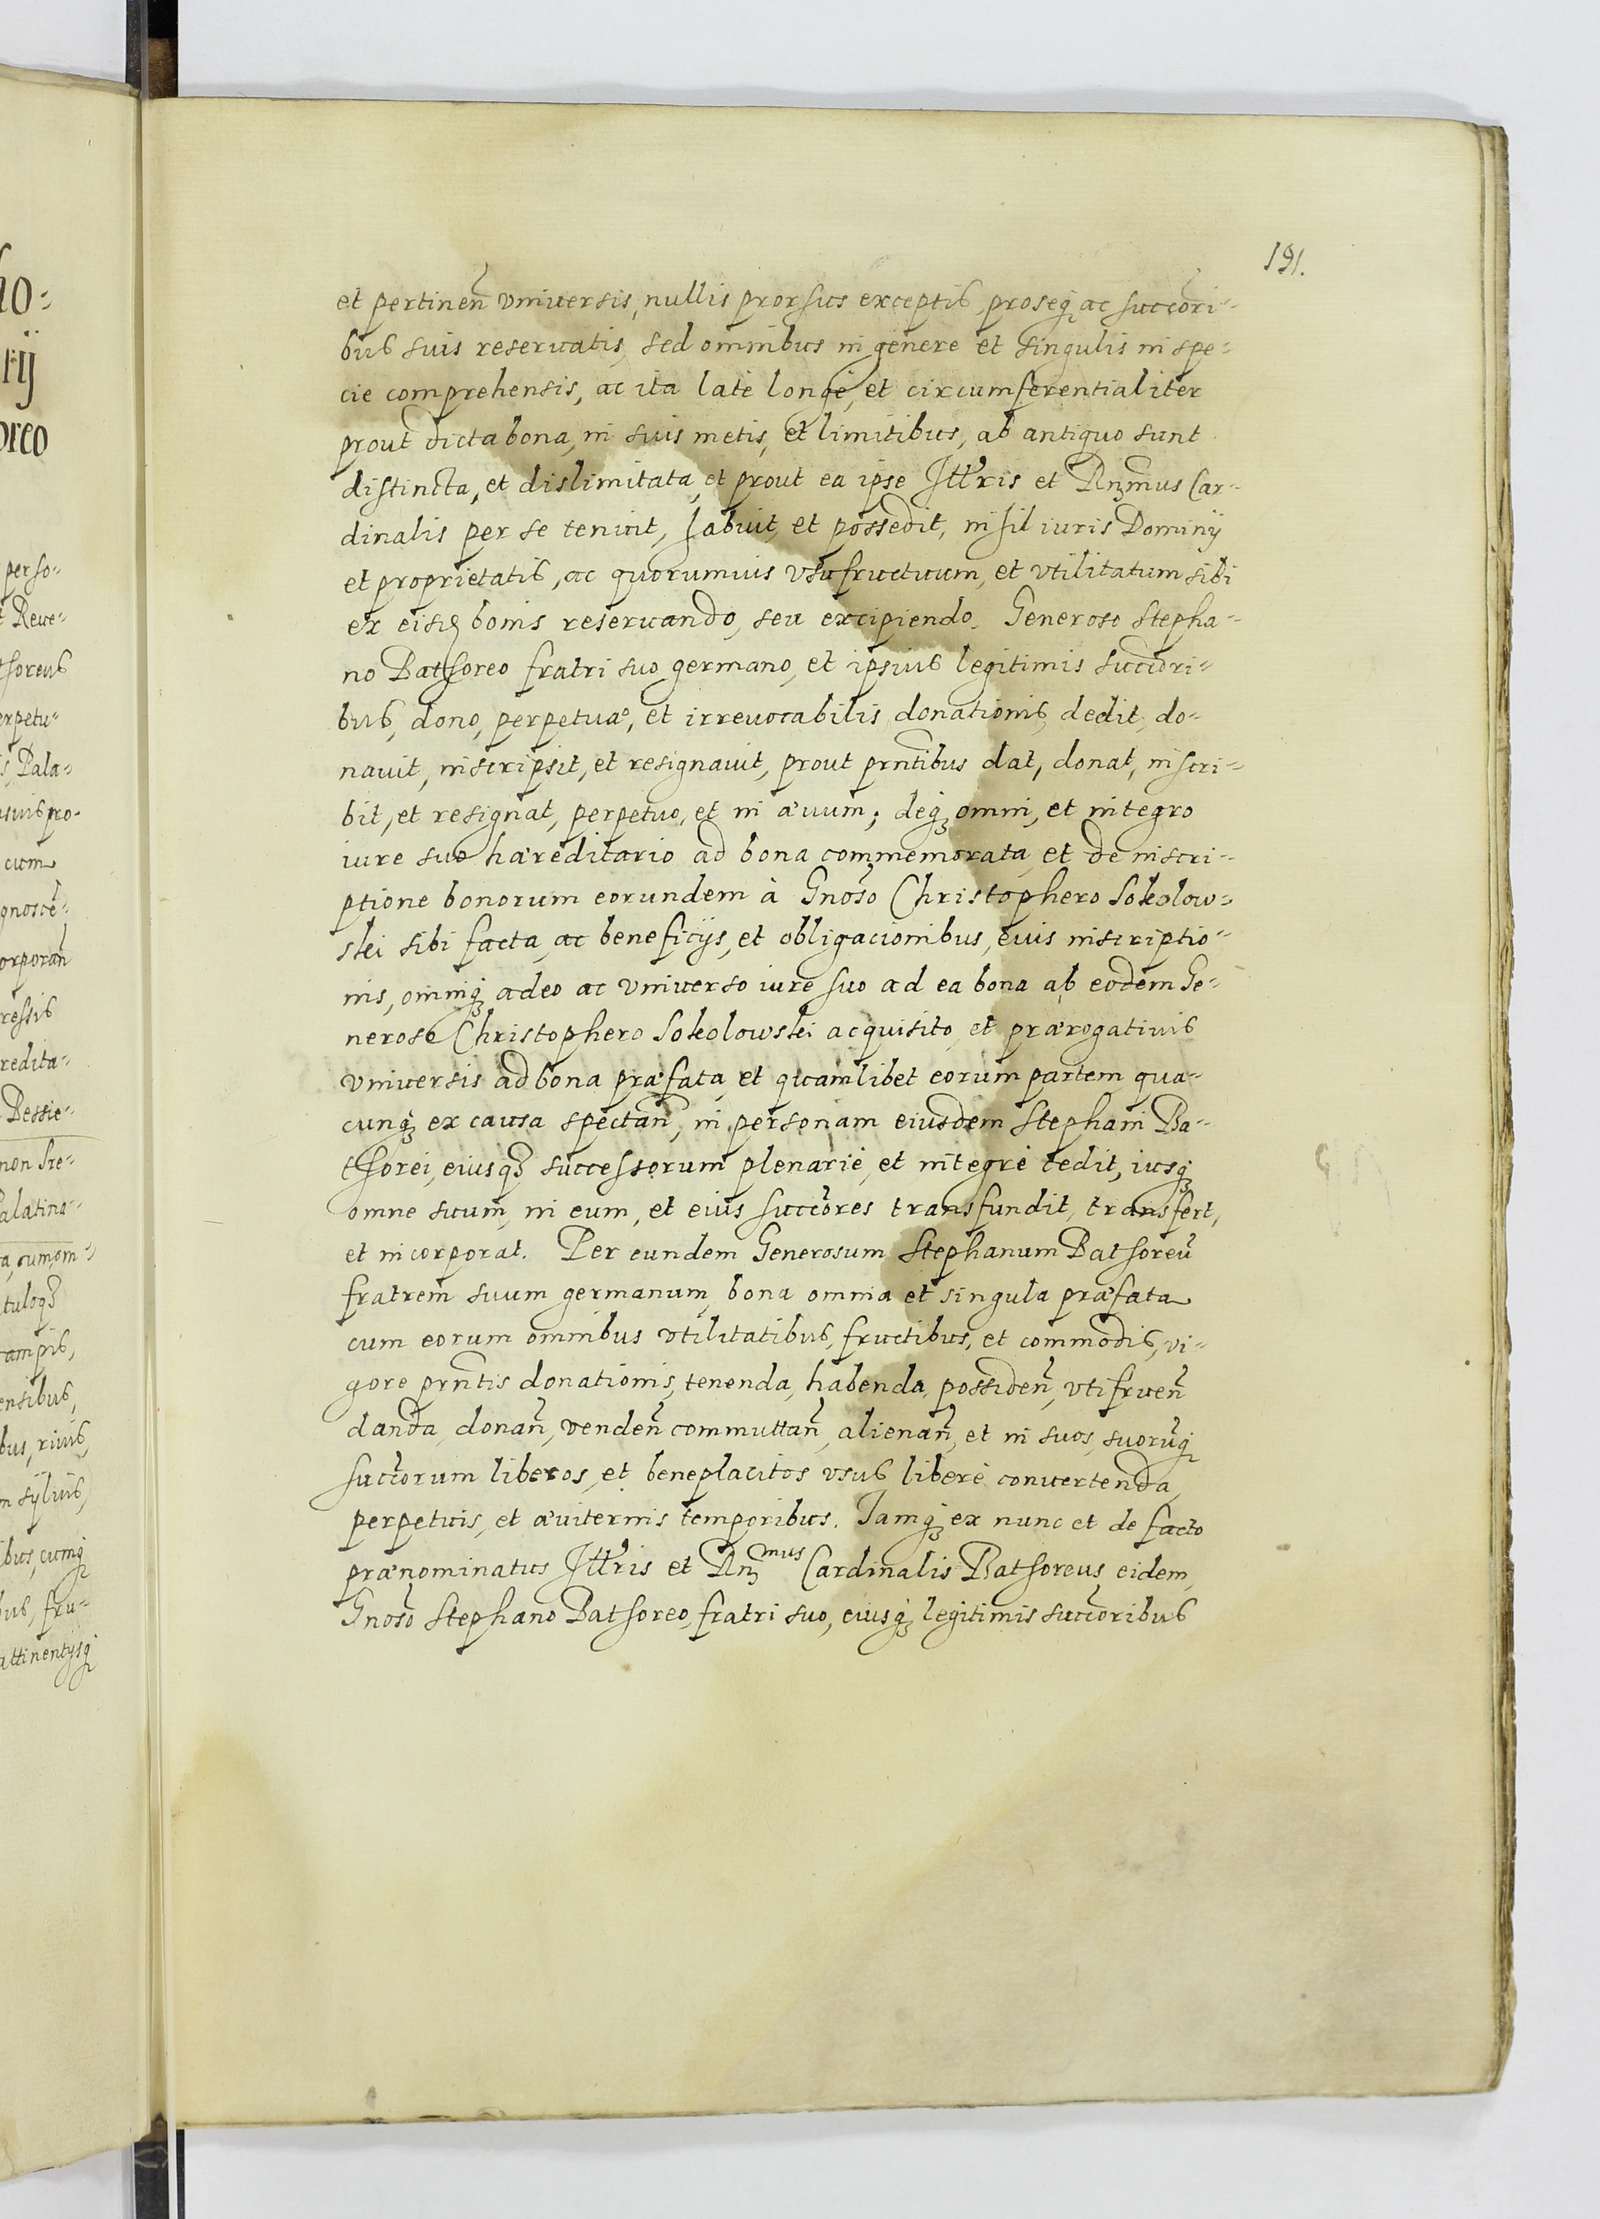 191.
et pertineñ vniuersis, nullis prorsus exceptis, proseq ac succori-
bus suis reseruatis, sed omnibus in genere et singulis in spe-
cie comprehensis, ac ita late longè, et circumferentialiter
prout dicta bona, in suis metis, et limitibus, ab antiquo sunt
distincta, et dislimitata, et prout ea ipse Illris et Rñdmus Car-
dinalis per se tenuit, habuit, et possedit, nihil iuris Dominij
et proprietatis, ac quorumuis vsufructuum, et vtilitatum sibi
ex eisd bonis reseruando, seu excipiendo. Generoso Stepha-
no Bathoreo fratri suo germano, et ipsius legitimis succori-
bus, dono, perpetuæ, et irreuocabilis donationis, dedit, do-
nauit, inscripsit, et resignauit, prout prñtibus dat, donat, inscri-
bit, et resignat, perpetuo, et in æuum; deq omni, et integro
iure suo hæreditario ad bona commemorata, et de inscri-
ptione bonorum eorundem à Gnoso Christophero Sokolow-
ski sibi facta, ac beneficijs, et obligacionibus, euis inscriptio-
nis, omniq adeo ac vniuerso iure suo ad ea bona ab eodem Ge-
neroso Christophero Sokolowski acquisito, et prærogatiuis
vniuersis ad bona præfata, et quamlibet eorum partem, qua-
cunq ex causa spectañ, in personam eiusdem Stephani Ba-
thorei, eiusq successorum plenariè, et integrè cedit, iusq
omne suum, in eum, et eius succores transfundit, transfert,
et incorporat. Per eundem Generosum Stephanum Bathoreũ
fratrem suum germanum, bona omnia et singula præfata
cum eorum omnibus vtilitatibus, fructibus, et commodis, vi-
gore prñtis donationis, tenenda, habenda, possideñ, vtifrueñ
danda, donañ, vendeñ commuttañ, alienañ, et in suos, suorũq
succorum liberos, et beneplacitos vsus liberè conuertenda,
perpetuis, et æuiternis temporibus. Iamq ex nunc et de facto
prænominatus Illris et Rñdmus Cardinalis Bathoreus, eidem,
Gnoso Stephano Bathoreo, fratri suo, eiusq legitimis succoribus